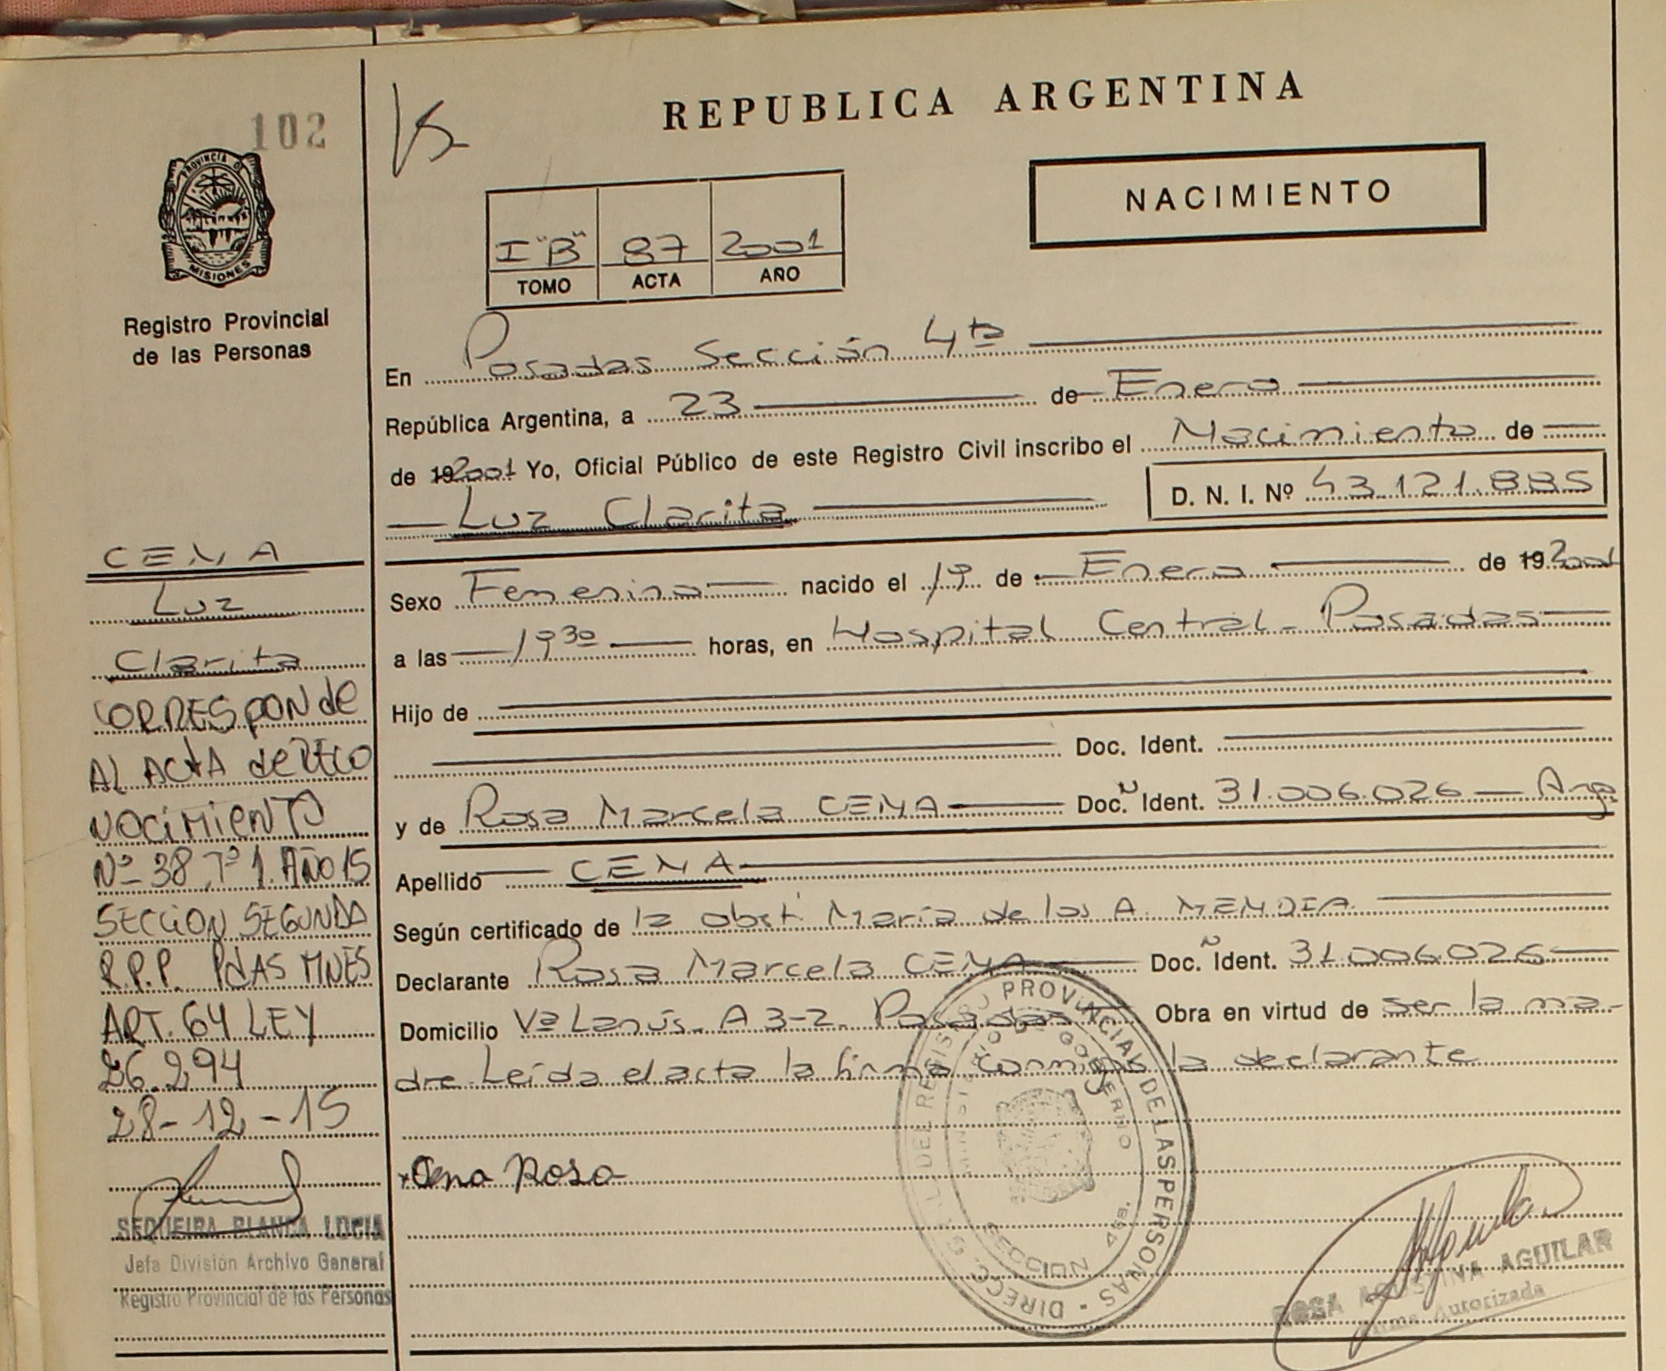 102
REPUBLICA ARGENTINA
PROVINCIA DE
MISIONES
Registro Provincial
de las Personas
NACIMIENTO
I "B" 87 2001
TOMO ACTA AÑO
En Posadas Sección 4ta
República Argentina, a 23 de Enero
de 192001 Yo, Oficial Público de este Registro Civil inscribo el Nacimiento de
Luz Clarita D. N. I. Nº 43.121.885
Sexo Femenino nacido el 19 de Enero de 192001
a las 1930 horas, en Hospital Central - Posadas
Hijo de
Doc. Ident.
y de Rosa Marcela CENA Doc. Ident. 31.006.026 Arg
Apellido CENA
Según certificado de la obst. María de los A. MENDIA
Declarante Rosa Marcela CENA Doc. Ident. 31.006.026
Domicilio Vª Lanús. A 3-2. Posadas Obra en virtud de ser la ma-
dre. Leída el acta la firma conmigo la declarante
Cena Rosa
CENA
Luz
Clarita
CORRESponde
AL ACtA de RECO
NOCiMieNTO
Nº 38, Tº 1. AÑO 15
SECCION SEGUNDA
R.P.P. PdAS MNES
ART. 64 LEY
26.294
28-12-15
SEQUEIRA BLANCA LUCIA
Jefa División Archivo General
Registro Provincial de las Personas
DIRECC. GRAL. DEL REGISTRO PROVINCIAL DE LAS PERSONAS
MINISTERIO DE GOBIERNO
SECCION 4ta.
ROSA AGUSTINA AGUILAR
Firma Autorizada